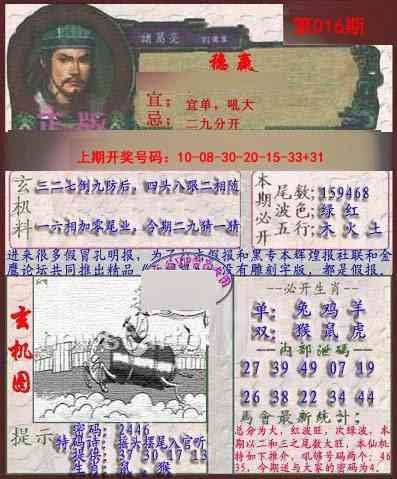 第016期
諸葛亮
德赢
正版
宜：宜单，吼大
忌：二九分开
上期开奖号码：10-08-30-20-15-33+31
玄机料
三二七倒九防后，四头八眼二相随
一六相加零尾业，今期二九猜一猜
本期必开
尾数：159468
波色：绿 红
五行：木 火 土
进来很多假冒孔明报，为了打击假报和黑专本辉煌报社联和金
鹰论坛共同推出精品
没有雕刻字版，都是假报，
玄机图
提示
密码：2446
特码诗：摇头摆尾入官听
提供：37 30 17 13
生肖：鼠，猴
--必开生肖--
单：兔 鸡 羊
双：猴 鼠 虎
--内部泄码--
27 39 49 07 19
26 38 22 34 44
馬會最新統计：
总分为大，红波旺，次绿波，本
期以二和三之尾数大旺，本仙机
特如下推介，吼够号码两个：46
35，今期送与大家的密码为4。